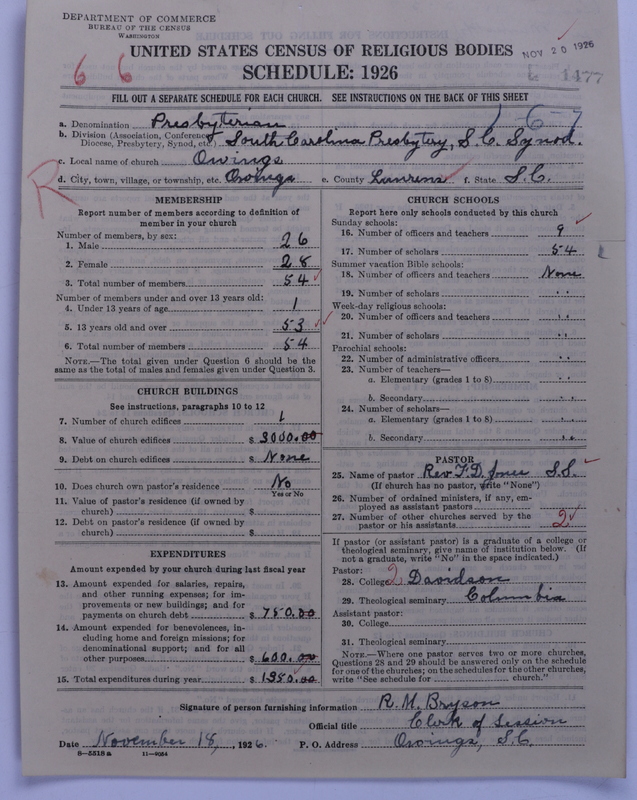 DEPARTMENT OF COMMERCE
BUREAU OF THE CENSUS
WASHINGTON
UNITED STATES CENSUS OF RELIGIOUS BODIES
SCHEDULE: 1926
NOV 20 1926
1477
6 6
FILL OUT A SEPARATE SCHEDULE FOR EACH CHURCH. SEE INSTRUCTIONS ON THE BACK OF THIS SHEET
1-6-7
a. Denomination Presbyterian
b. Division (Association, Conference, Diocese, Presbytery, Synod, etc.) South Carolina Presbytery, S.C. Synod.
c. Local name of church Owings
d. City, town, village, or township, etc. Owings e. County Laurens f. State S.C.
R
MEMBERSHIP
Report number of members according to definition of member in your church
Number of members, by sex:
1. Male 26
2. Female 28
3. Total number of members 54
Number of members under and over 13 years old:
4. Under 13 years of age 1
5. 13 years old and over 53
6. Total number of members 54
NOTE.—The total given under Question 6 should be
same as the total of males and females given under Question 3.
CHURCH BUILDINGS
See instructions, paragraphs 10 to 12
7. Number of church edifices 1
8. Value of church edifices $ 3000.00
9. Debt on church edifices $ None
10. Does church own pastor's residence? No
Yes or No
11. Value of pastor's residence (if owned by
church) $
12. Debt on pastor's residence (if owned by
church) $
EXPENDITURES
Amount expended by your church during last fiscal year
13. Amount expended for salaries, repairs,
and other running expenses; for im-
provements or new buildings; and for
payments on church debt $ 750.00
14. Amount expended for benevolences, in-
cluding home and foreign missions; for
denominational support; and for all
other purposes $ 600.00
15. Total expenditures during year $ 1350.00
CHURCH SCHOOLS
Report here only schools conducted by this church
Sunday schools:
16. Number of officers and teachers 9
17. Number of scholars 54
Summer vacation Bible schools:
18. Number of officers and teachers None
19. Number of scholars "
Week-day religious schools:
20. Number of officers and teachers "
21. Number of scholars "
Parochial schools:
22. Number of administrative officers "
23. Number of teachers—
a. Elementary (grades 1 to 8) "
b. Secondary
24. Number of scholars—
a. Elementary (grades 1 to 8) "
b. Secondary "
PASTOR
25. Name of pastor Rev. F.D. Jones S.S.
(If church has no pastor, write "None")
26. Number of ordained ministers, if any, em-
ployed as assistant pastors
27. Number of other churches served by the
pastor or his assistants 2
If pastor (or assistant pastor) is a graduate of a college or
theological seminary, give name of institution below. (If
not a graduate, write "No" in the space indicated.)
Pastor:
28. College 2 Davidson
29. Theological seminary Columbia
Assistant pastor:
30. College
31. Theological seminary
NOTE.—Where one pastor serves two or more churches,
Questions 28 and 29 should be answered only on the schedule
for one of the churches; on the schedules for the other churches,
write "See schedule for church."
Signature of person furnishing information R. M. Bryson
Official title Clerk of Session
Date November 18, 1926. P. O. Address Owings, S.C.
8—5518 a 11—9064